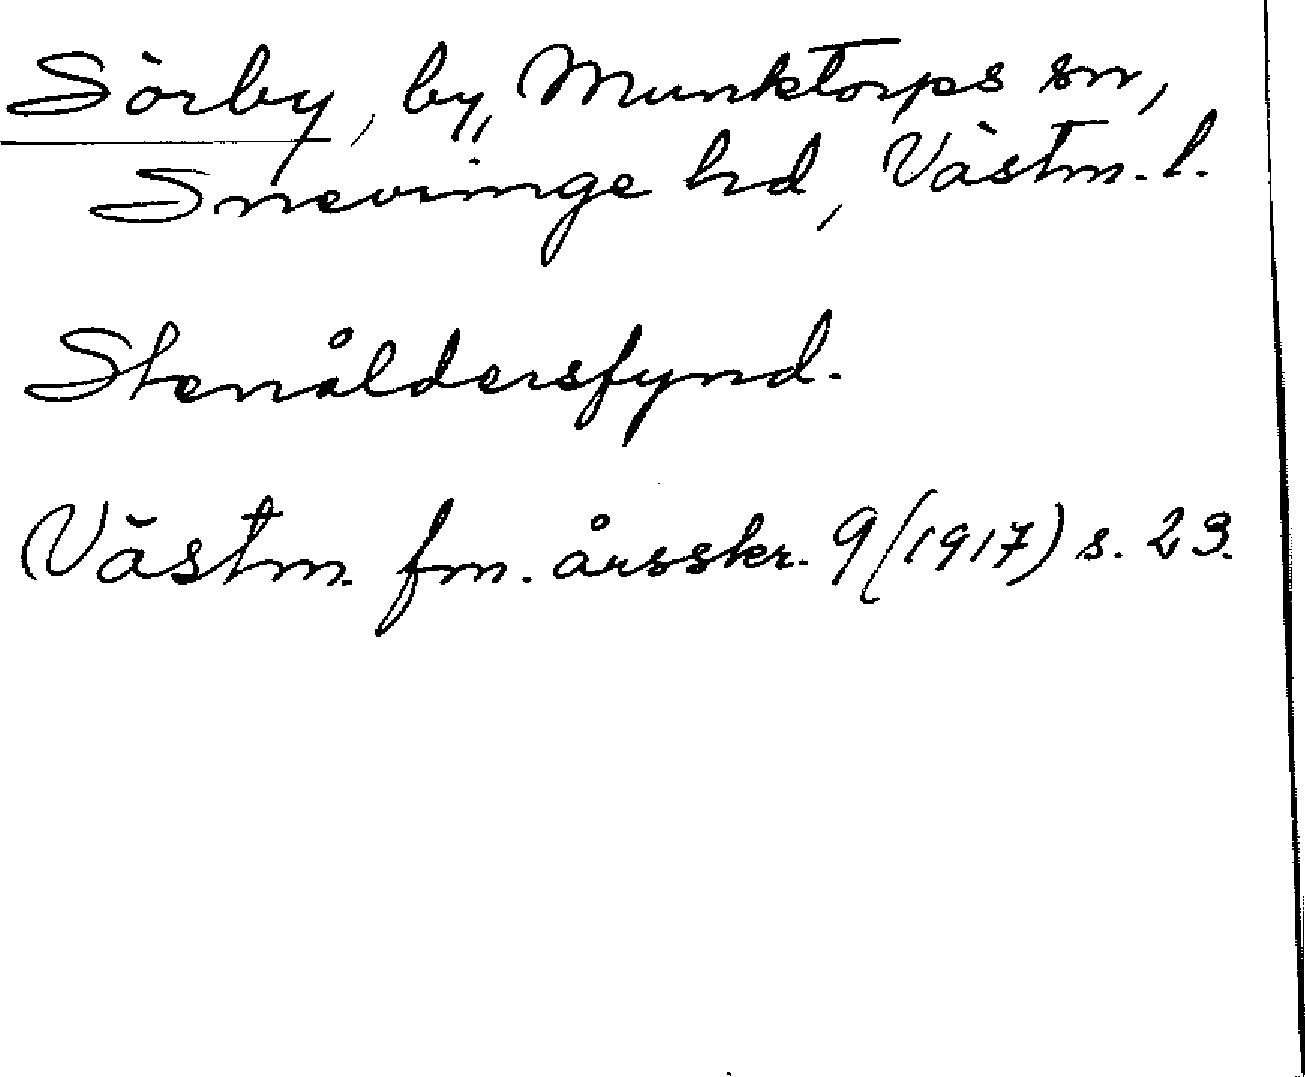 Sörby, by, Munktorps sn,
Snevringe hd, Västm. l.
Stenåldersfynd.
Västm. fm. årsskr. 9 (1917) s. 23.